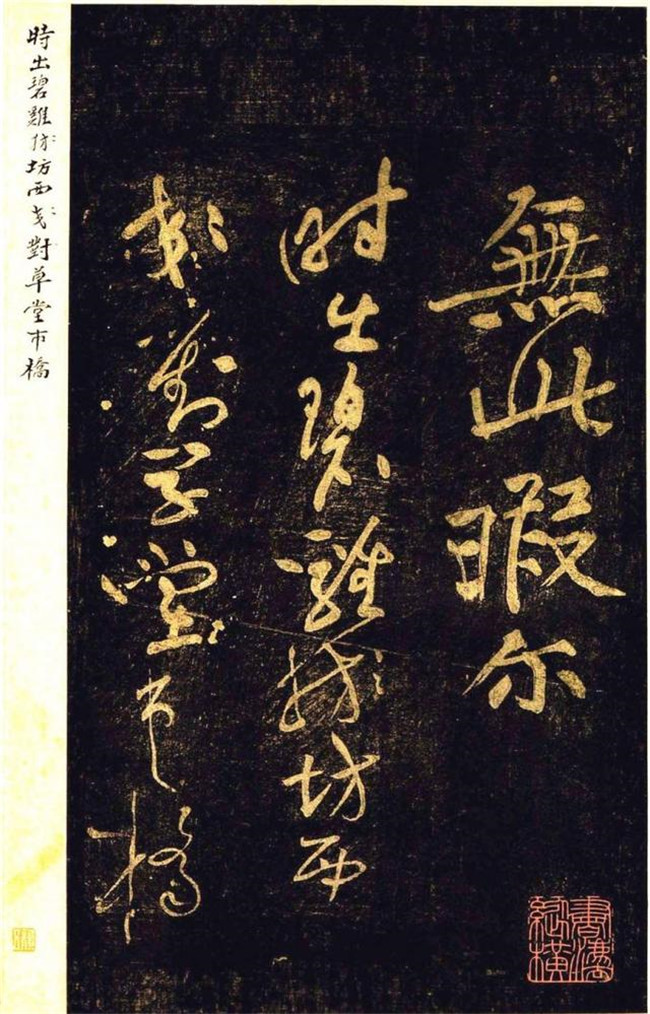 無此暇尔
时出碧雞坊西
對草堂市橋
時出碧雞坊西對草堂市橋